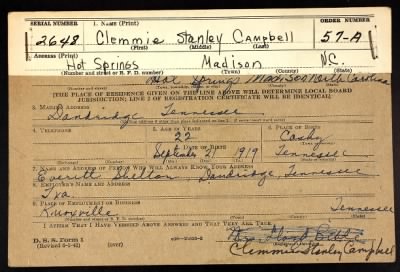 SERIAL NUMBER 1. NAME (Print) ORDER NUMBER
2648 Clemmie Stanley Campbell 57-A
(First) (Middle) (Last)
ADDRESS (Print)
Hot Springs Madison NC.
(Number and street or R. F. D. number)
Hot Springs Madison North Carolina
[THE PLACE OF RESIDENCE GIVEN ON THE LINE ABOVE WILL DETERMINE LOCAL BOARD
JURISDICTION; LINE 2 OF REGISTRATION CERTIFICATE WILL BE IDENTICAL]
3. MAILING ADDRESS
Dandridge Tennessee
4. TELEPHONE 5. AGE IN YEARS 6. PLACE OF BIRTH
22 Cosby
DATE OF BIRTH
September 21 1919 Tennessee
7. NAME AND ADDRESS OF PERSON WHO WILL ALWAYS KNOW YOUR ADDRESS
Everitt Shelton Dandridge, Tennessee
8. EMPLOYER'S NAME AND ADDRESS
Tva
9. PLACE OF EMPLOYMENT OR BUSINESS
Knoxville Tennessee
(Number and street or R. F. D. number)
I AFFIRM THAT I HAVE VERIFIED ABOVE ANSWERS AND THAT THEY ARE TRUE.
D. S. S. Form 1
Clemmie Stanley Campbell